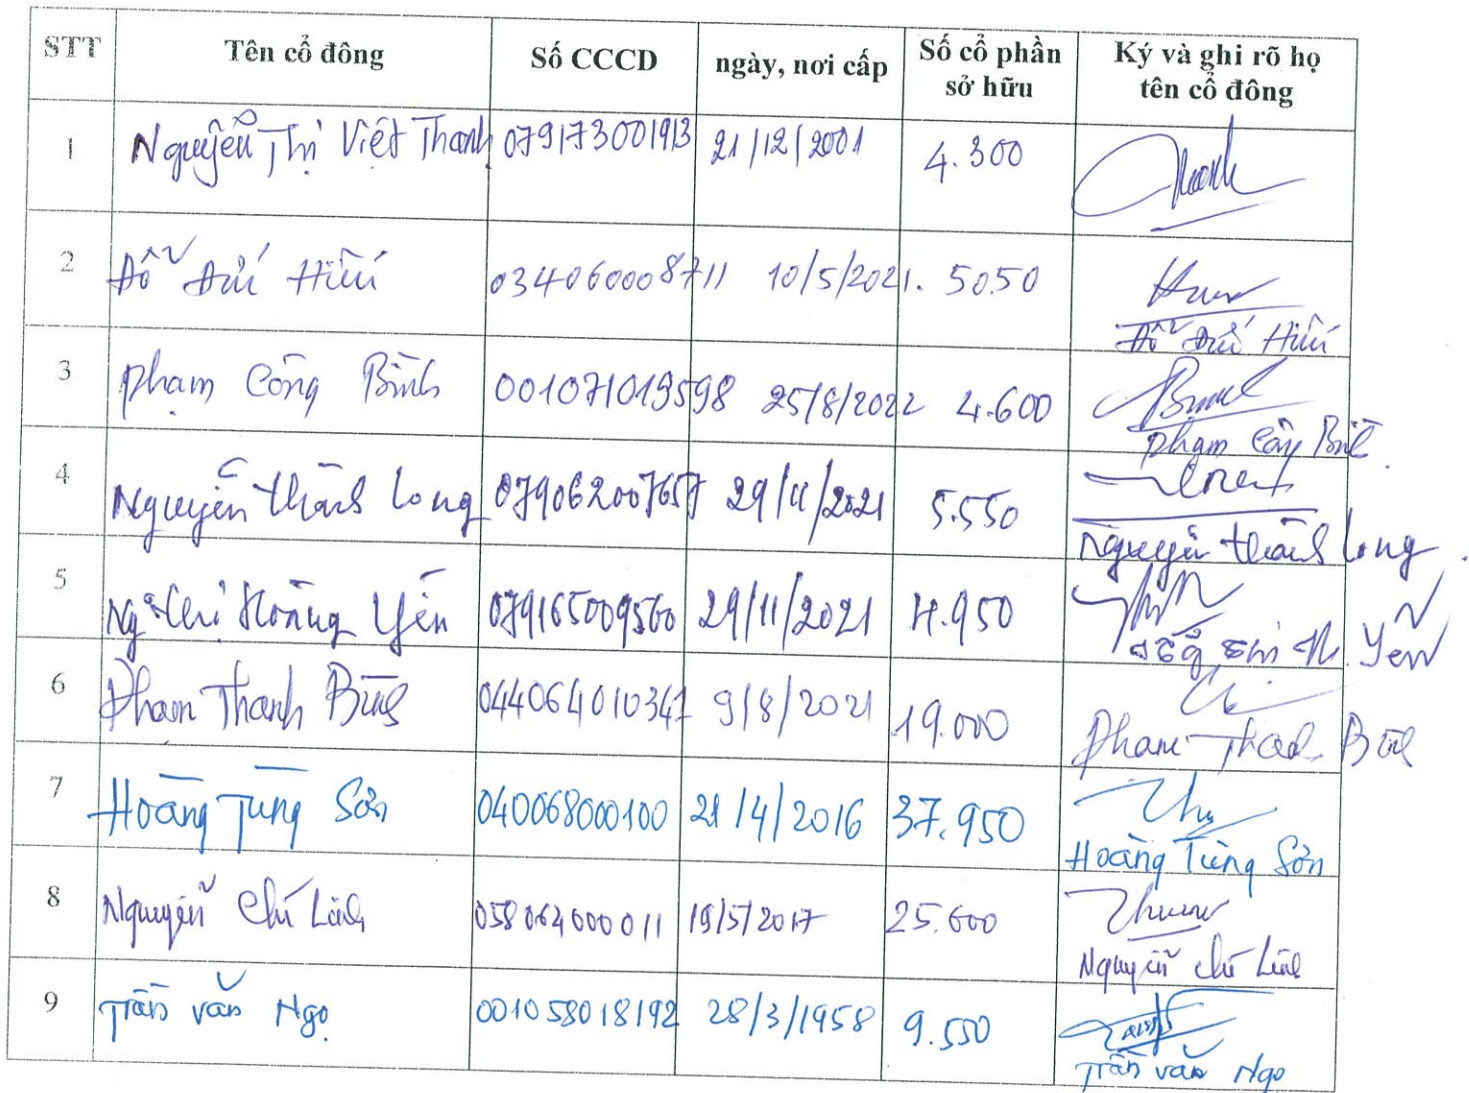 STT Tên cổ đông Số CCCD ngày, nơi cấp Số cổ phần sở hữu Ký và ghi rõ họ tên cổ đông
1 Nguyễn Thị Việt Thanh 079173001913 21/12/2001 4.300 Thanh
2 Đỗ Đức Hiếu 034060008711 10/5/2021. 5050
Đỗ Đức Hiếu
3 Phạm Công Bình 001071019598 25/8/2022 4.600
Phạm Công Bình.
4 Nguyễn Thành Long 079062007657 29/11/2021 5.550
Nguyễn Thành Long.
5 Ng Thị Hoàng Yến 079165009560 29/11/2021 4.950
Thị H. Yến
6 Phạm Thanh Bình 044064010341 9/8/2021 19.000
Phạm Thanh Bình
7 Hoàng Tùng Sơn 040068000100 21/4/2016 37.950
Hoàng Tùng Sơn
8 Nguyễn Chí Linh 058064000011 19/5/2017 25.600
Nguyễn Chí Linh
9 Trần Văn Ngọ 001058018192 28/3/1958 9.550
Trần Văn Ngọ